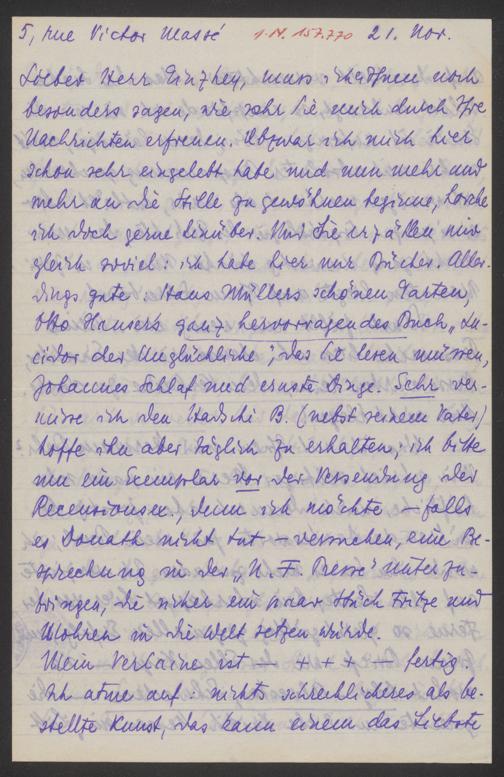 5, rue Victor Massé I.N. 157.770 21. Nov.
Lieber Herr Ginzkey, muss ich Ihnen noch
besonders sagen, wie sehr Sie mich durch Ihre
Nachrichten erfreuen. Obzwar ich mich hier
schon sehr eingelebt habe und nun mehr und
mehr an die Stille zu gewöhnen beginne, horche
ich doch gerne hinüber. Und Sie erzählen mir
gleich soviel: ich habe hier nur Bücher. Aller-
dings gute: Hans Müllers schönen Garten,
Otto Hausers ganz hervorragendes Buch „Lu-
cidor der Unglückliche“, das Sie lesen müssen,
Johannes Schlaf und ernste Dinge. Sehr ver-
misse ich den Hadschi B. (nebst seinem Vater)
hoffe ihn aber täglich zu erhalten; ich bitte
um ein Exemplar vor der Versendung der
Recensionsex., denn ich möchte – falls
es Donath nicht tut – versuchen, eine Be-
sprechung in der „N. F. Presse“ unterzu-
bringen, die sicher ein paar Stück Fritze und
Mohren in die Welt setzen würde.
Mein Verlaine ist – + + + – fertig.
Ich atme auf: nichts schrecklicheres als be-
stellte Kunst, das kann einem das Liebste